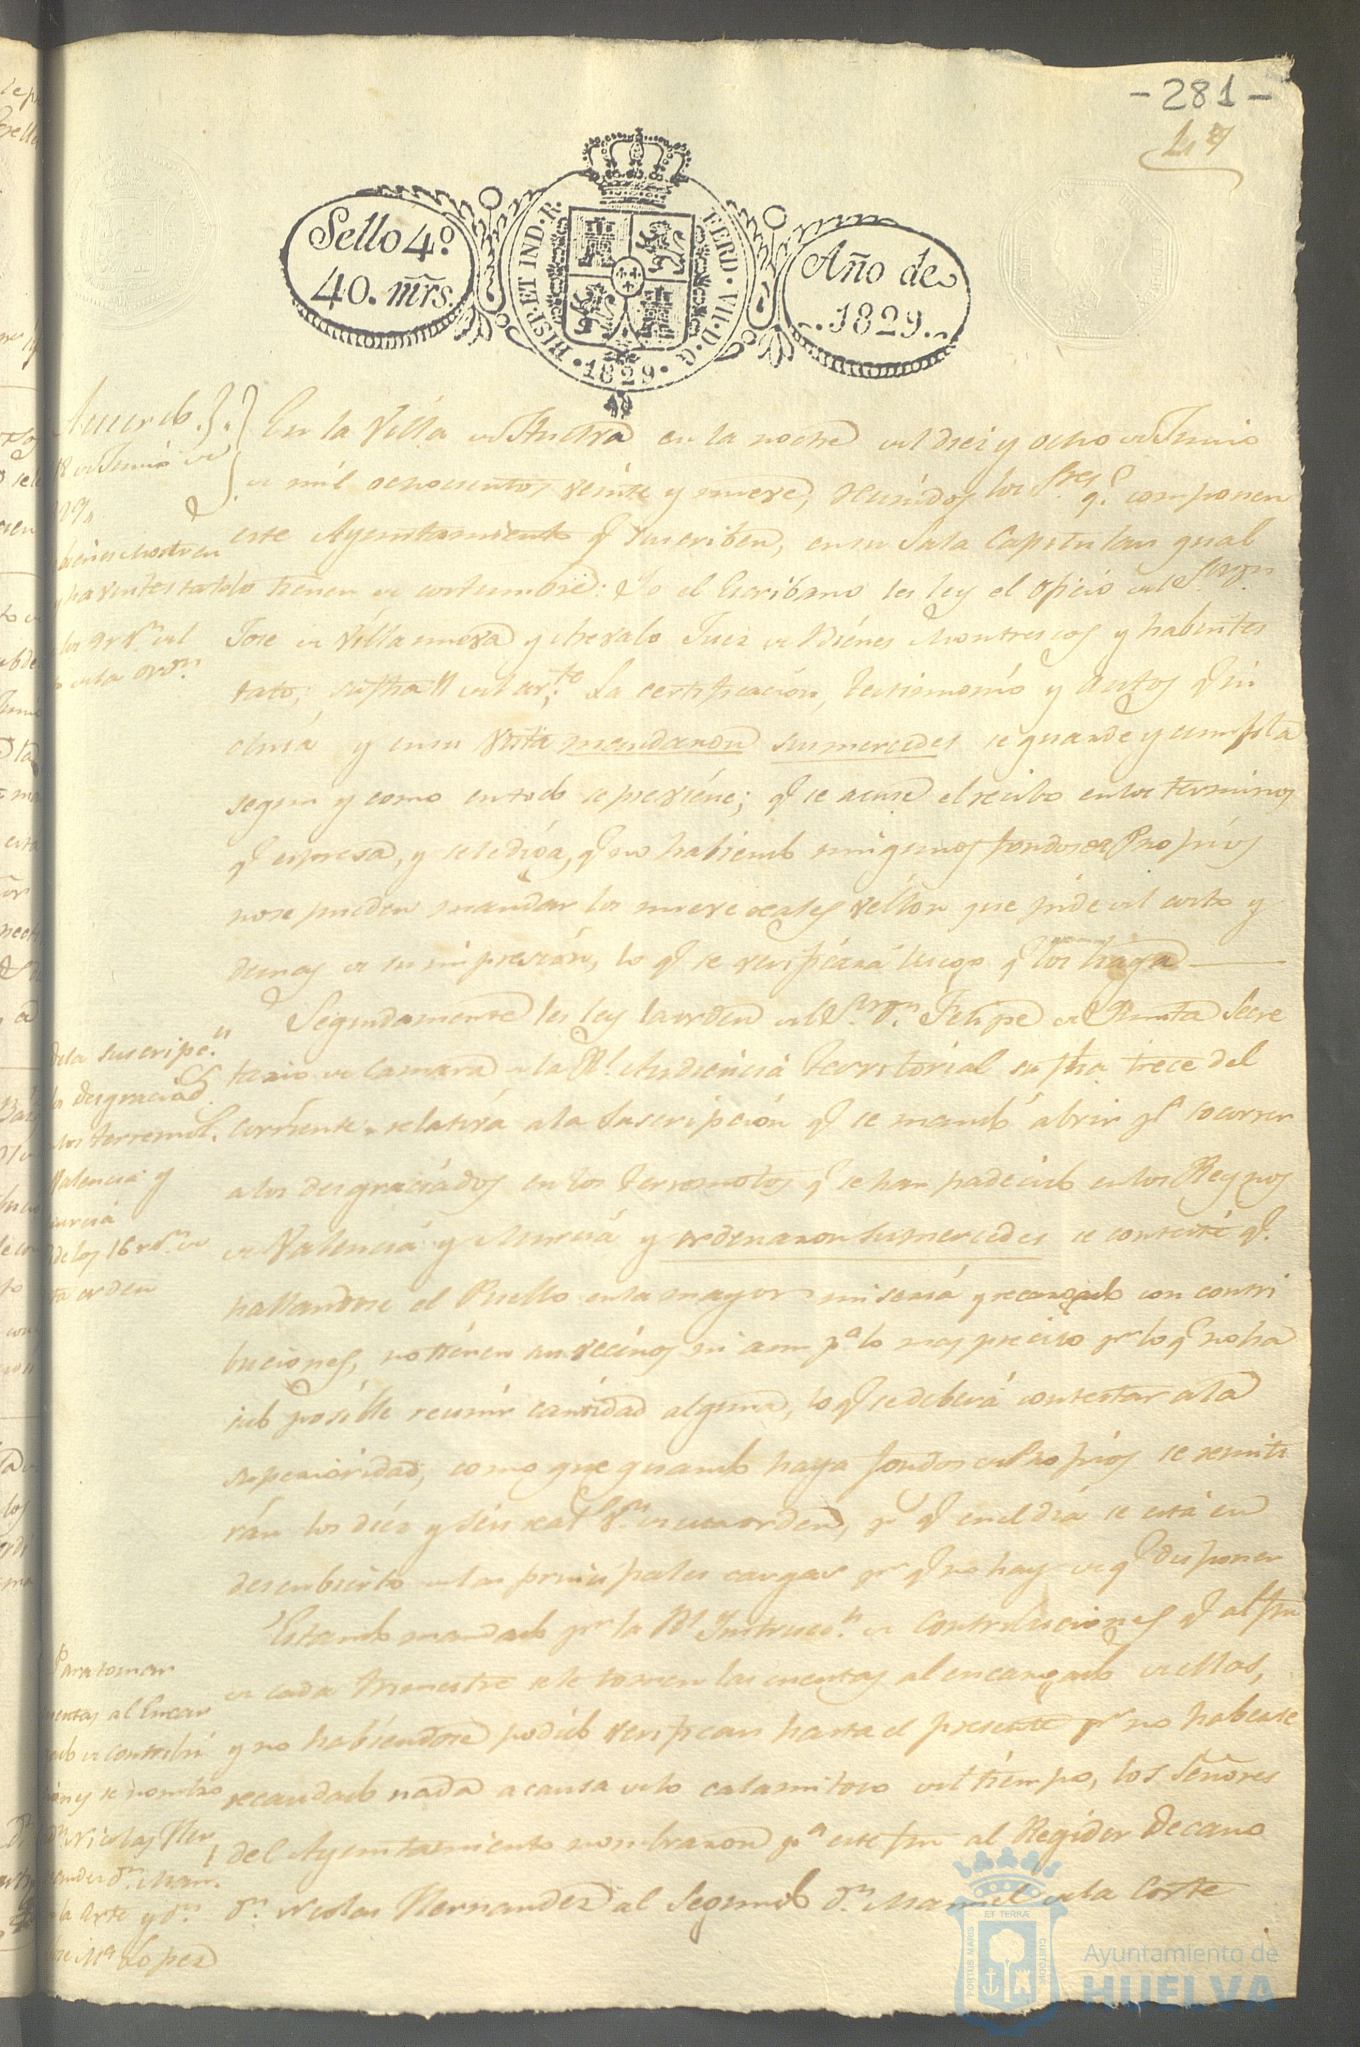 -281-
47
Sello 4º
40. mrs.
HISP. ET IND. R.
FERD. VII. D. G.
1829
Año de
1829.
Acuerdo
18 de Junio de
En la Villa de Huelva en la noche del diez y ocho de Junio
de mil ochocientos veinte y nueve, reunidos los Sres. q. componen
este Ayuntamiento q suscriben, en su Sala Capitular qual
lo tienen de costumbre: Yo el Escribano les ley el oficio del Sr. Dn.
Jose de Villanueva y Arevalo Juez de Bienes Mostrencos y habintes
tato, su fha 11 del corrte. La certificacion, testimonio y autos q in
cluia y en su vista mandaron sus mercedes se guarde y cumpla
segun y como en todo se previene; q se acuse el recibo en los terminos
q espresa, y se le diga, q no habiendo ningunos fondos de Propios
no se pueden mandar los nueve reales vellon que pide del costo y
demas de su impresion, lo q se verificará luego q los haya
Segundamente les ley la orden del Sr. Dn. Felipe de Secre
tario de Camara de la Rl. Audiencia Territorial su fha trece del
corriente relativa a la Suscripcion q se mandó abrir pa socorrer
a los desgraciados en los terromotos q se han padecido en los Reynos
de Valencia y Murcia y ordenaron sus mercedes se conteste q.
hallandose el Pueblo en la mayor miseria y recargado con contri
buciones, no tienen sus vecinos ni aun pa. lo mas preciso pr lo q no ha
sido posible reunir cantidad alguna, lo q se deberá contestar a la
superioridad, como que quando haya fondos de Propios se remiti
rán los diez y seis reals vn. de esa orden, pr q en el dia se está en
descubierto de las principales cargas pr q no hay de q disponer
Estando mandado pr la Rl Instrucn. de Contribuciones q al fin
de cada trimestre se le tomen las cuentas al encargado de ellas,
y no habiendose podido verificar hasta el presente pr no haberse
recaudado nada a causa de lo calamitoso del tiempo, los Señores
del Ayuntamiento nombraron pa este fin al Regidor Decano
Dn. Nicolas Hernandez al Segundo Dn. Manuel de la Corte
de la suscripcn.
los desgraciad
los terremot.
Valencia y
Murcia
de los 16 rs vn de
la orden
Para tomar
cuentas al Encar
gado de contribu
ciones se nombro
Dn. Nicolas Her
nandez Dn. Man.
Ma. Lopez
PORTUS MARIS ET TERRAE CUSTODIA
Ayuntamiento de
HUELVA